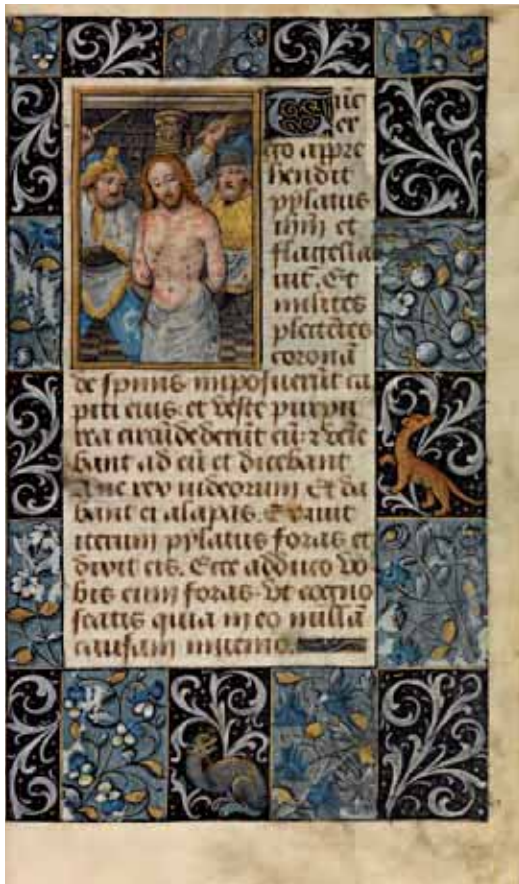 Tūc
er
go appre
hendit
pylatus
ihm et
flagella
uit. Et
milites
plectētes
coronā
de spinis imposuerūt ca
piti eius et veste purpu
rea circūdederūt eū: ⁊ veīe
bant ad eū et dicebant
Aue rex iudeorum Et da
bant ei alapas. Exiuit
iterum pylatus foras et
dixit eis. Ecce adduco vo
bis eum foras. vt cogno
scatis quia in eo nullā
causam inuenio.